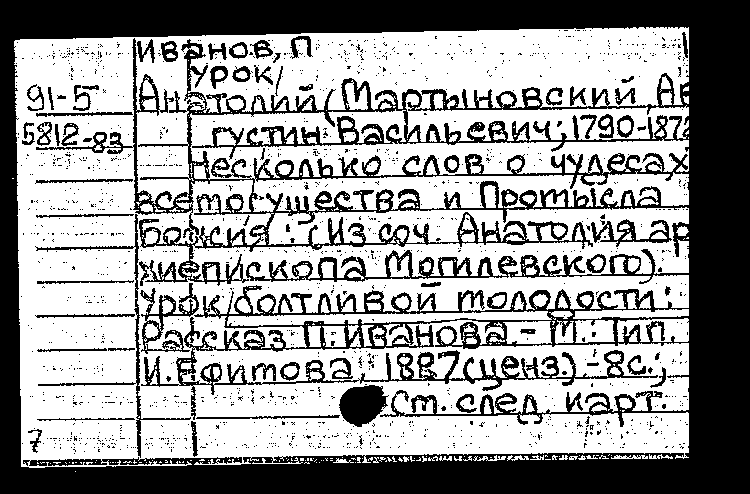 Иванов, П
Урок/
91-5 Анатолий (Мартыновский, Ав
5812-83 густин Васильевич; 1790-1872
Несколько слов о чудесах
всемогущества и Промысла
Божия: (Из соч. Анатолия ар
хиепископа Могилевского).
Урок болтливой молодости:
Рассказ П. Иванова. - М.: Тип.
И. Ефитова, 1887 (ценз.) - 8с.;
См. след. карт.
7